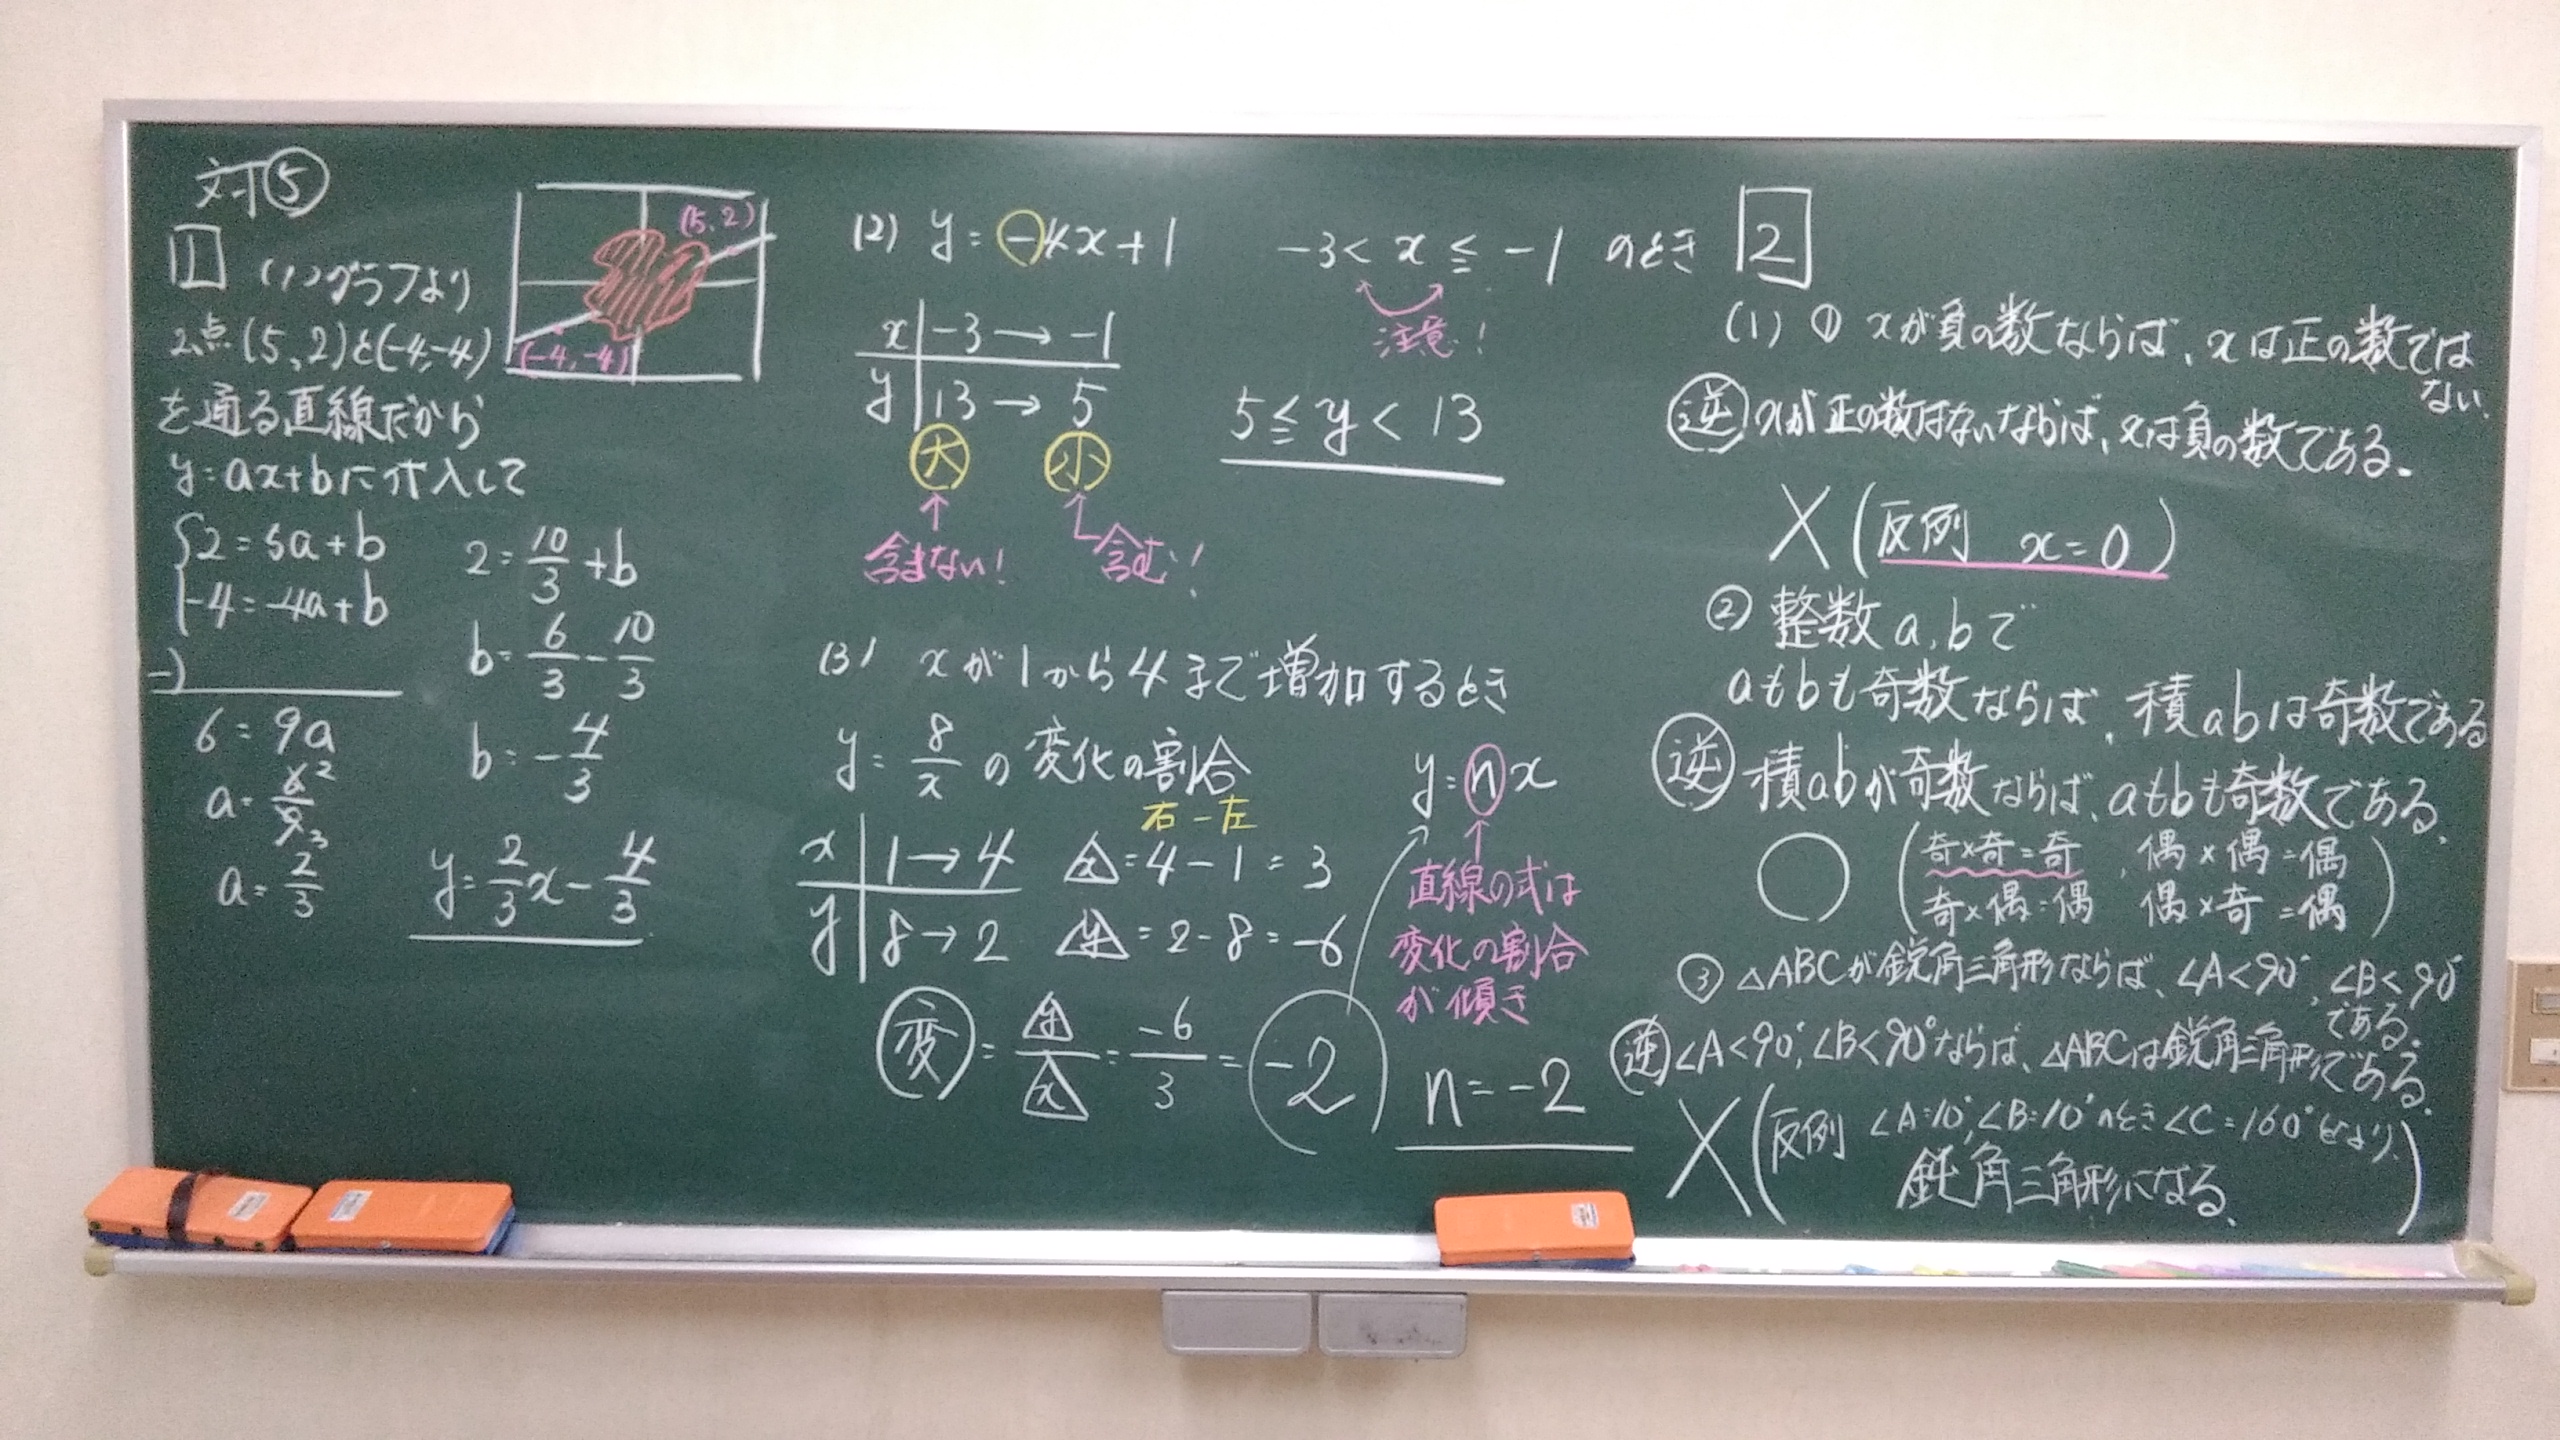 対⑤
1 (1) グラフより
2点(5,2)と(-4,-4)
を通る直線だから
y=ax+bに代入して
(5,2)
(-4,-4)
2=5a+b
-4=-4a+b
-)
6=9a
a=6/9 2 3
a=2/3
2=10/3+b
b=6/3-10/3
b=-4/3
y=2/3x-4/3
(2) y=-4x+1 -3<x≦-1 のとき
注意!
x -3→-1
y 13→5
大 小
含まない! 含む!
5≦y<13
(3) xが1から4まで増加するとき
y=8/x の変化の割合
右-左
x 1→4 △x=4-1=3
y 8→2 △y=2-8=-6
変=△y/△x=-6/3=-2
y=nx
直線の式は
変化の割合
が傾き
n=-2
2
(1) ① xが負の数ならば、xは正の数では
ない.
逆 xが正の数はないならば、xは負の数である.
X (反例 x=0)
② 整数a,bで
aもbも奇数ならば、積abは奇数である
逆 積abが奇数ならば、aもbも奇数である.
○ (奇×奇=奇, 偶×偶=偶
奇×偶=偶 偶×奇=偶)
③ △ABCが鋭角三角形ならば、∠A<90°,∠B<90°
である.
逆 ∠A<90°,∠B<90°ならば、△ABCは鋭角三角形である.
X (反例 ∠A=10°,∠B=10°のとき∠C=160°となり、
鈍角三角形になる.)